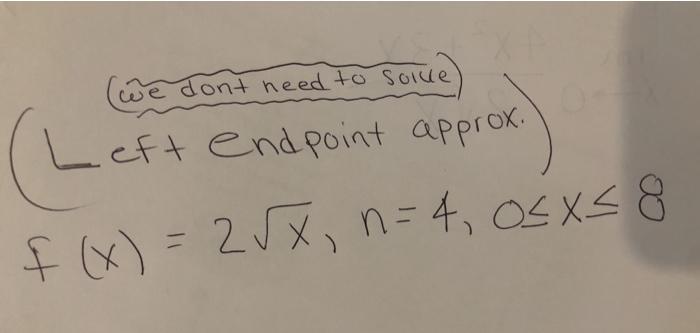 (we dont need to solve)
(Left endpoint approx.)
f(x) = 2√x, n=4, 0≤x≤8